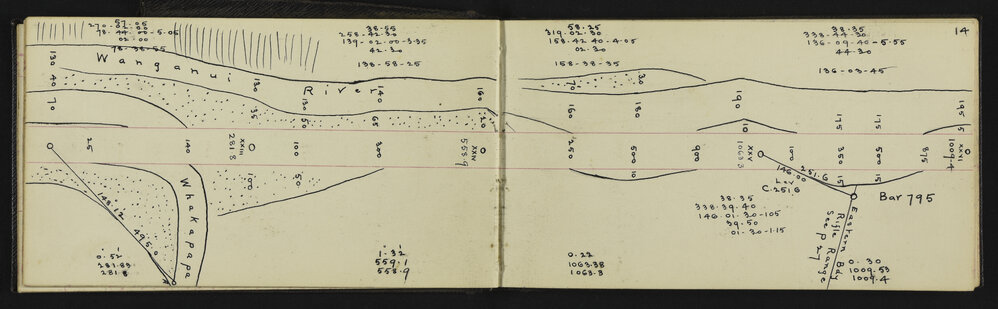 57.05
270.02.00
78.44.00-5.05
02.00
78.38.55
38.55
258.42.30
139.02.00-3.35
42.30
138-58-25
58.25
319.02.30
158.42.40-4.05
02.30
158-38-35
38.35
338.44.30
136-09.40-5.55
44.30
136-03-45
14
Wanganui River
130
40
70
130
35
130
50
140
65
160
20
70
30
160
180
190
10
175
175
195
5
25
140
XXIII
281.8
100
300
XXIV
558.9
250
500
10
900
XXV
1063.3
100
350
15
500
15
875
XXVI
1009.4
100
50
Whakapapa
148.12
495.0
146.00
251.6
Lev
C.251.6
Bar 795
Eastern Bdy
Rifle Range
See p 27
38.35
338.39.40
146.01.30-105
39.50
01-30-1.15
0.52
281.83
281.8
1.32
559.1
558.9
0.22
1063.38
1063.3
0.30
1009.53
1009.4